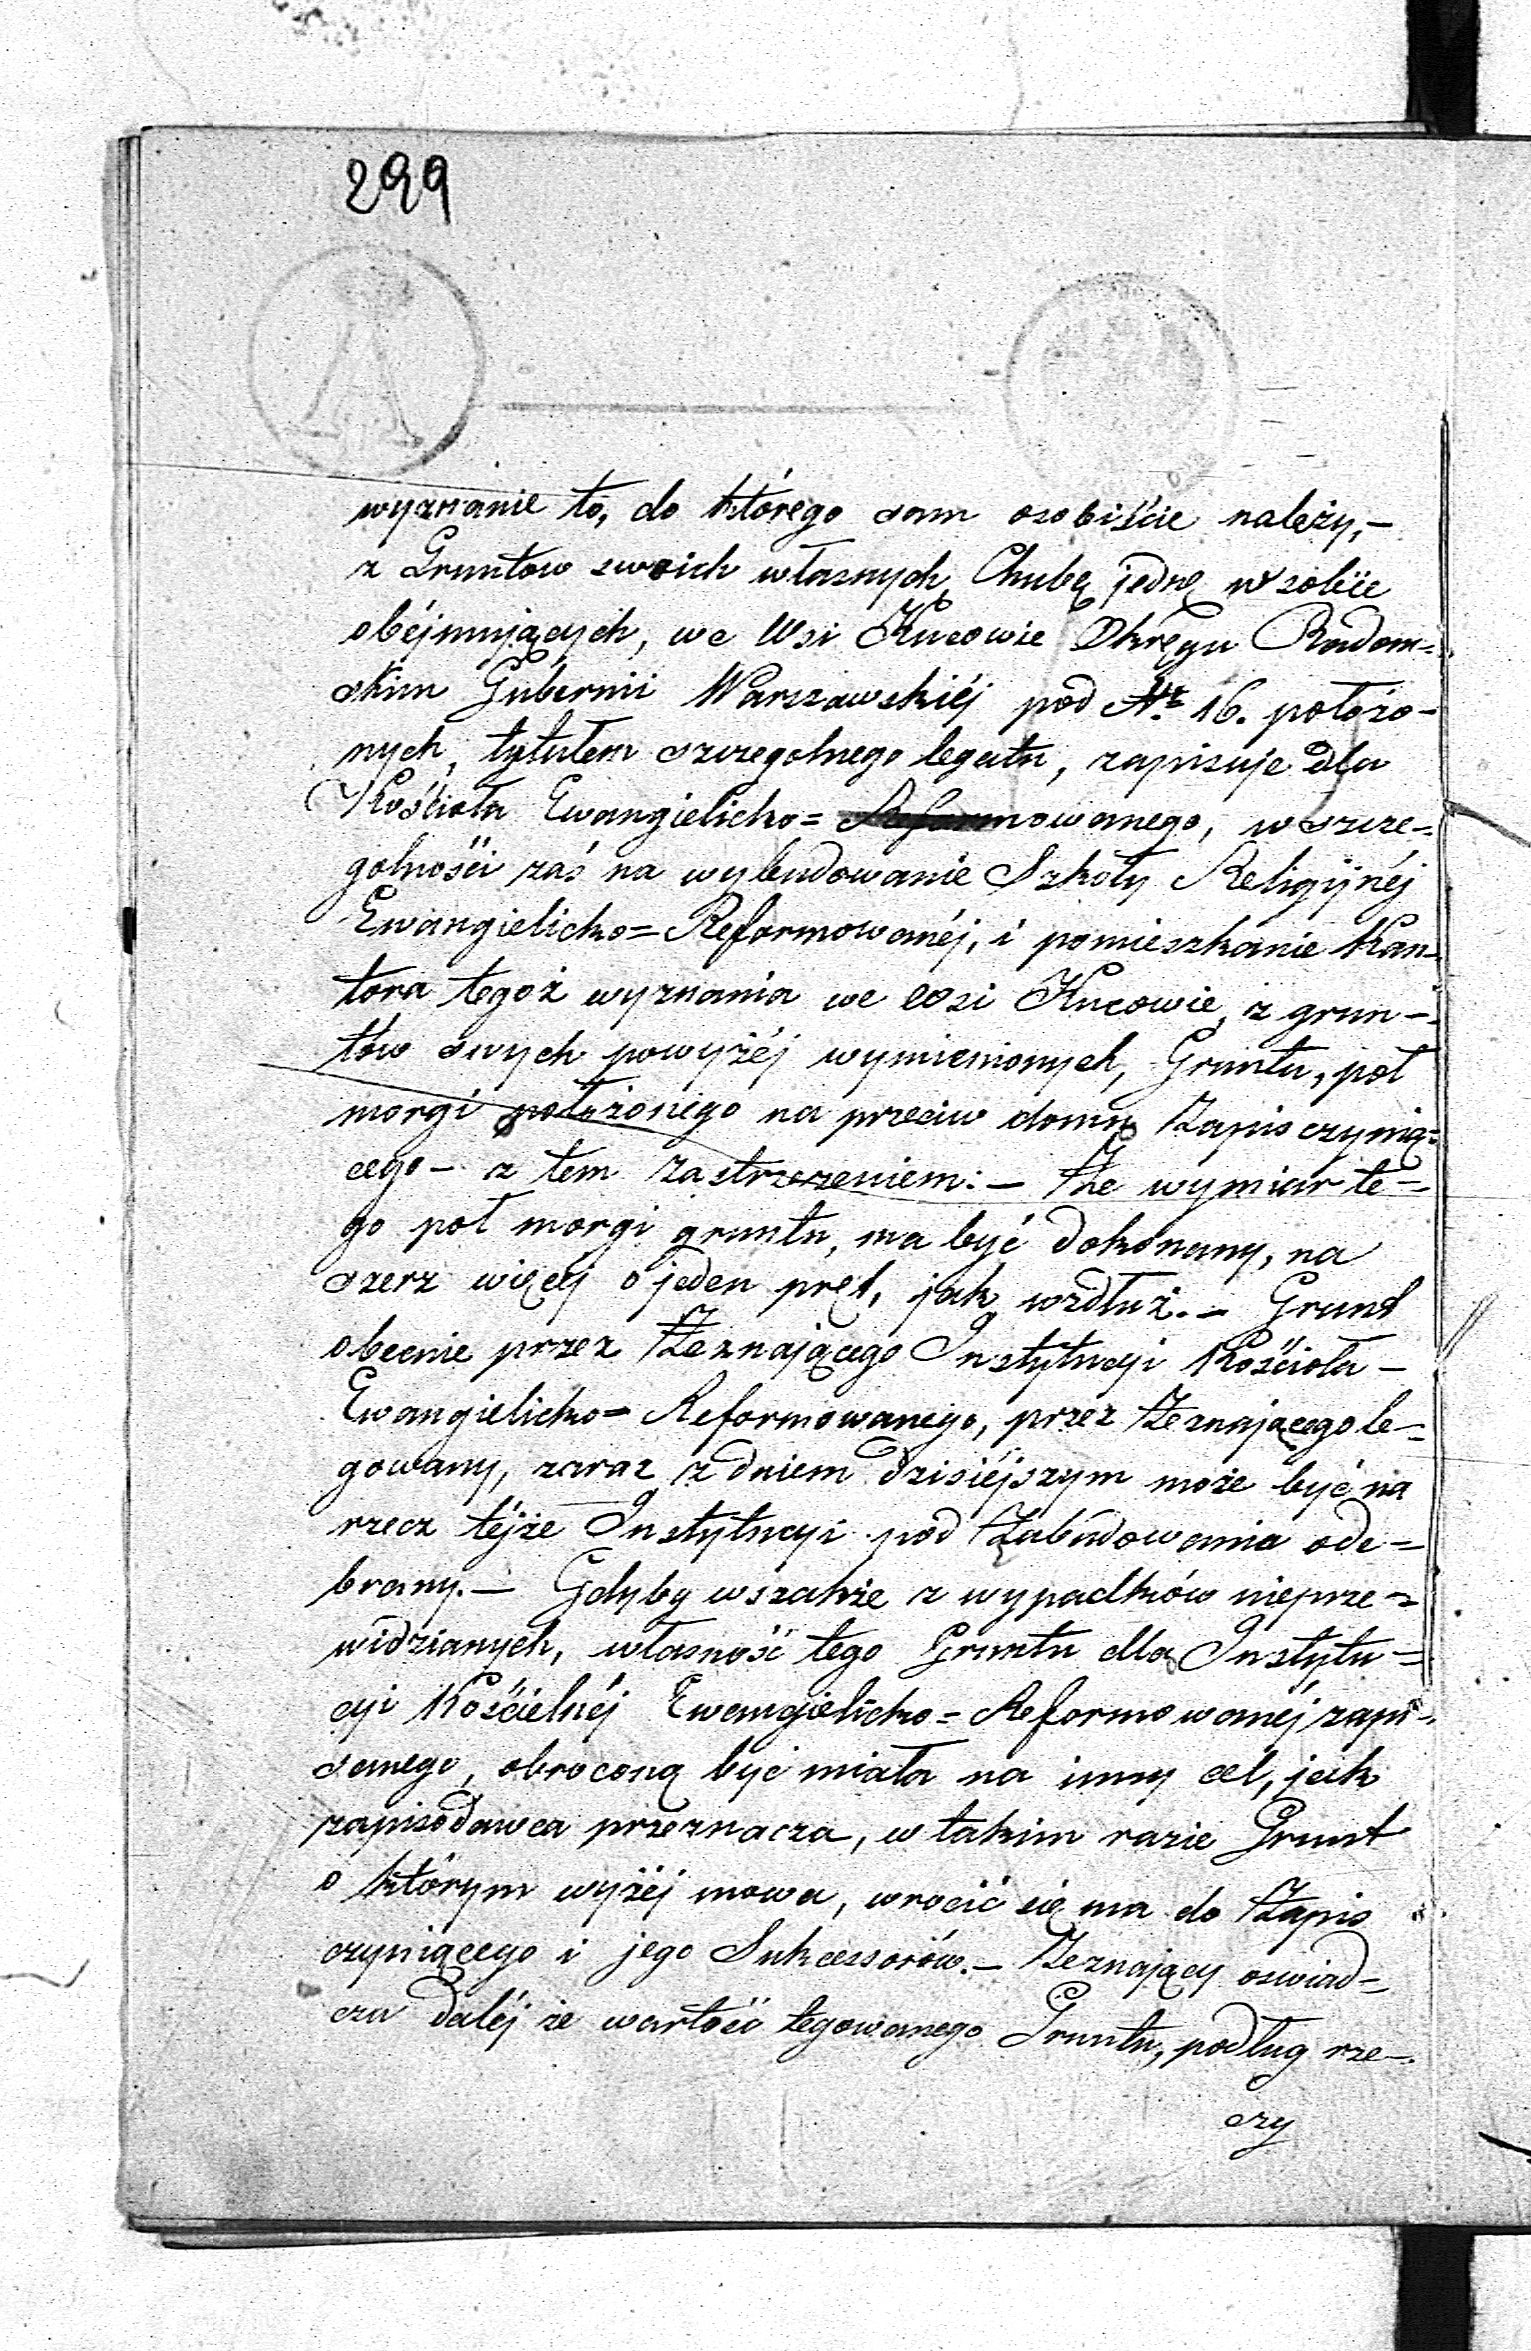 299
wyznanie to, do którego sam osobiście należy, –
z Gruntow swoich własnych Chubę jednę w sobie
obéjmujących, we Wsi Kucowie Okręgu Radom=
skim Gubernii Warszawskiéj pod Nr 16. położo–
nych, tytułem szczegolnego legatu, zapisuje dla
Kościoła Ewangielicko= Reformowanego, w szcze=
golności zaś na wybudowanie Szkoły Religijnéj
Ewangielicko= Reformowanéj, i pomieszkanie Kan=
tora tegoż wyznania we Wsi Kucowie, z grun–
tów swych powyżéj wymienionych, Gruntu, pół
morgi położonego na przeciw domu Zapis czynią=
cego – z tem zastrzeżeniem: – Że wymiar te=
go pół morgi gruntu, ma być dokonany, na
szerz więcej o jeden pręt, jak wzdłuż. – Grunt
obecnie przez Zeznającego Instytucyi Kościoła –
Ewangielicko= Reformowanego, przez Zeznającego le=
gowany, zaraz z dniem dzisiéjszym może być na
rzecz téjże Instytucyi pod Zabudowania ode=
brany. – Gdyby wszakże z wypadków nieprze=
widzianych, własność tego Gruntu dla Instytu=
cyi Kościelnéj Ewangielicko= Reformowanéj zapi=
sanego, obroconą być miała na inny cel, jak
zapisodawca przeznacza, w takim razie Grunt
o którym wyżéj mowa, wrócić się ma do Zapis
czyniącego i jego Sukcessorów. – Zeznający oswiad=
cza daléj że wartość legowanego Gruntu, podług rze–
czy